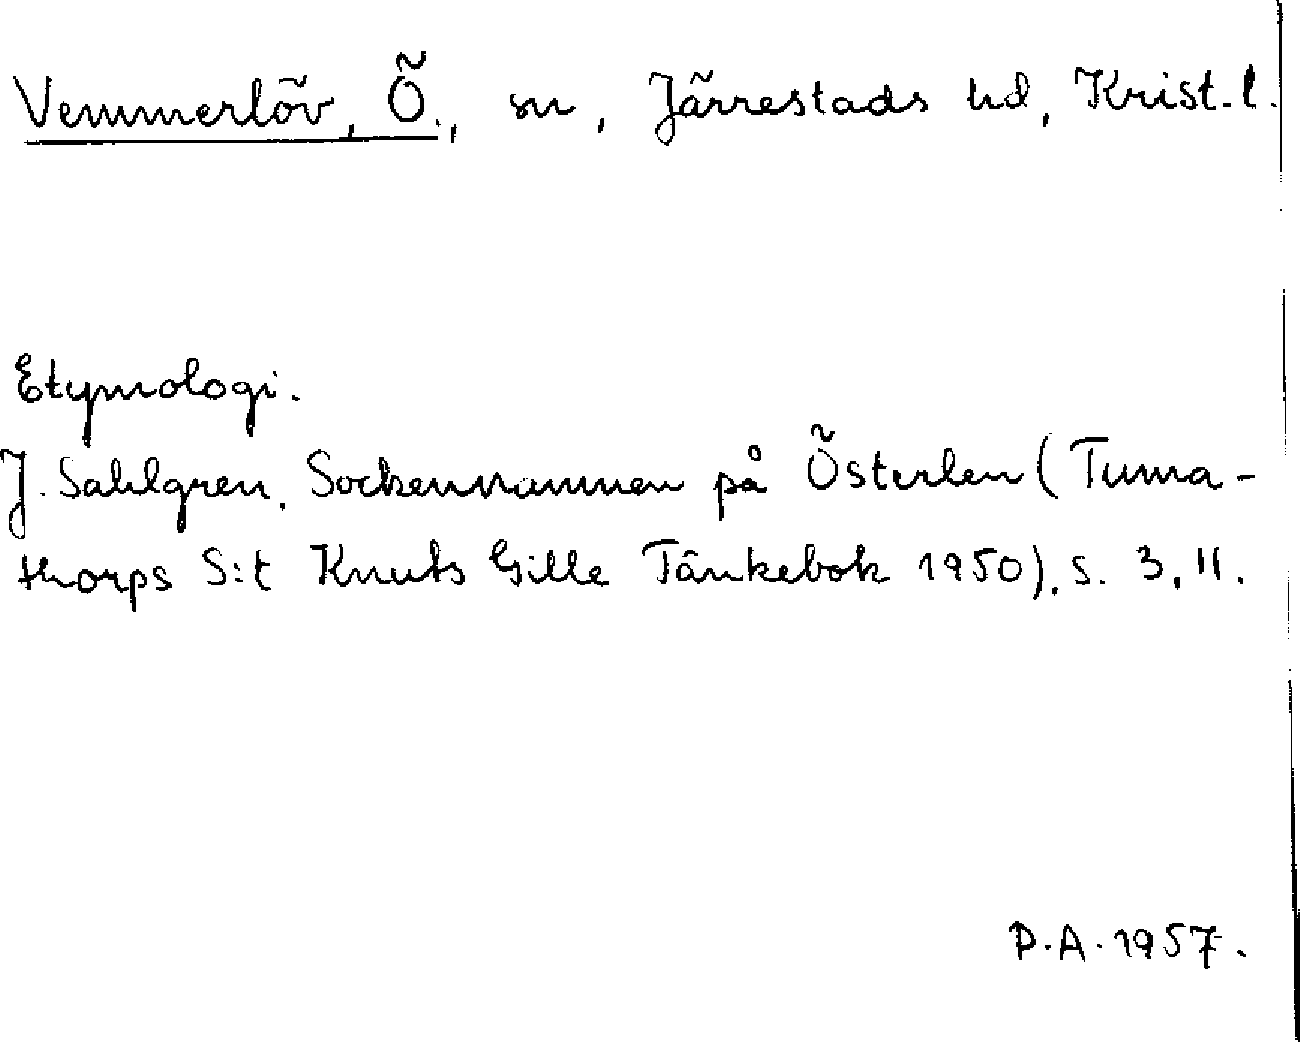 Vemmerlöv, Ö., sn, Järrestads hd, Krist. l.
Etymologi.
J. Sahlgren, Sockennamnen på Österlen (Tuma-
thorps S:t Knuts Gille Tänkebok 1950), s. 3, 11.
P.A. 1957.